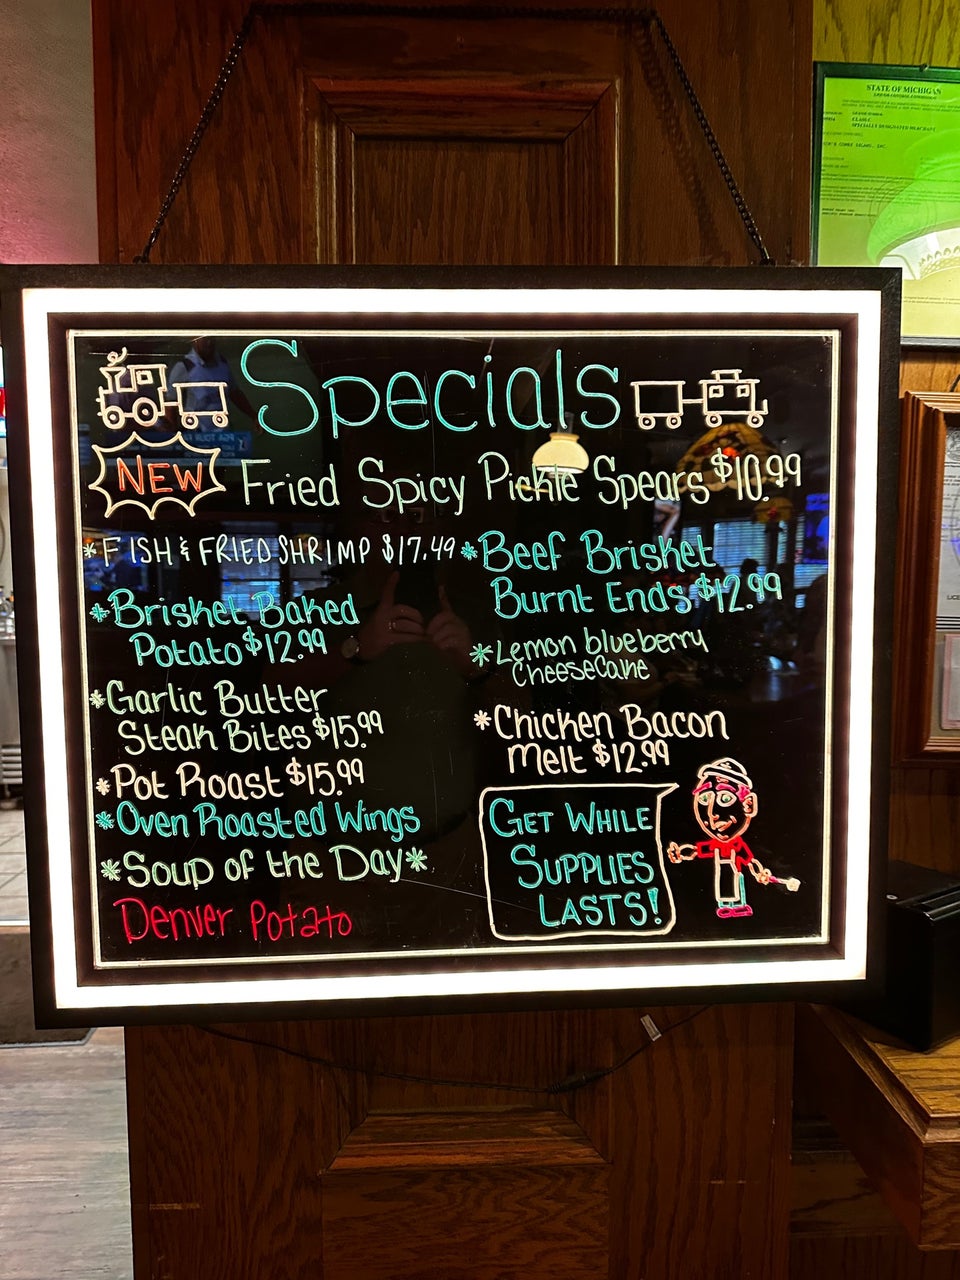 STATE OF MICHIGAN
Specials
NEW
Fried Spicy Pickle Spears $10.99
*FISH & FRIED SHRIMP $17.49
*Brisket Baked
Potato $12.99
*Garlic Butter
Steak Bites $15.99
*Pot Roast $15.99
*Oven Roasted Wings
*Soup of the Day*
Denver Potato
*Beef Brisket
Burnt Ends $12.99
*Lemon blueberry
Cheesecake
*Chicken Bacon
Melt $12.99
GET WHILE
SUPPLIES
LASTS!